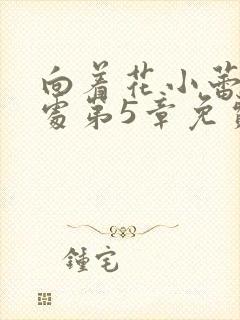 向着花小蕾
处第5章免费
锺宅